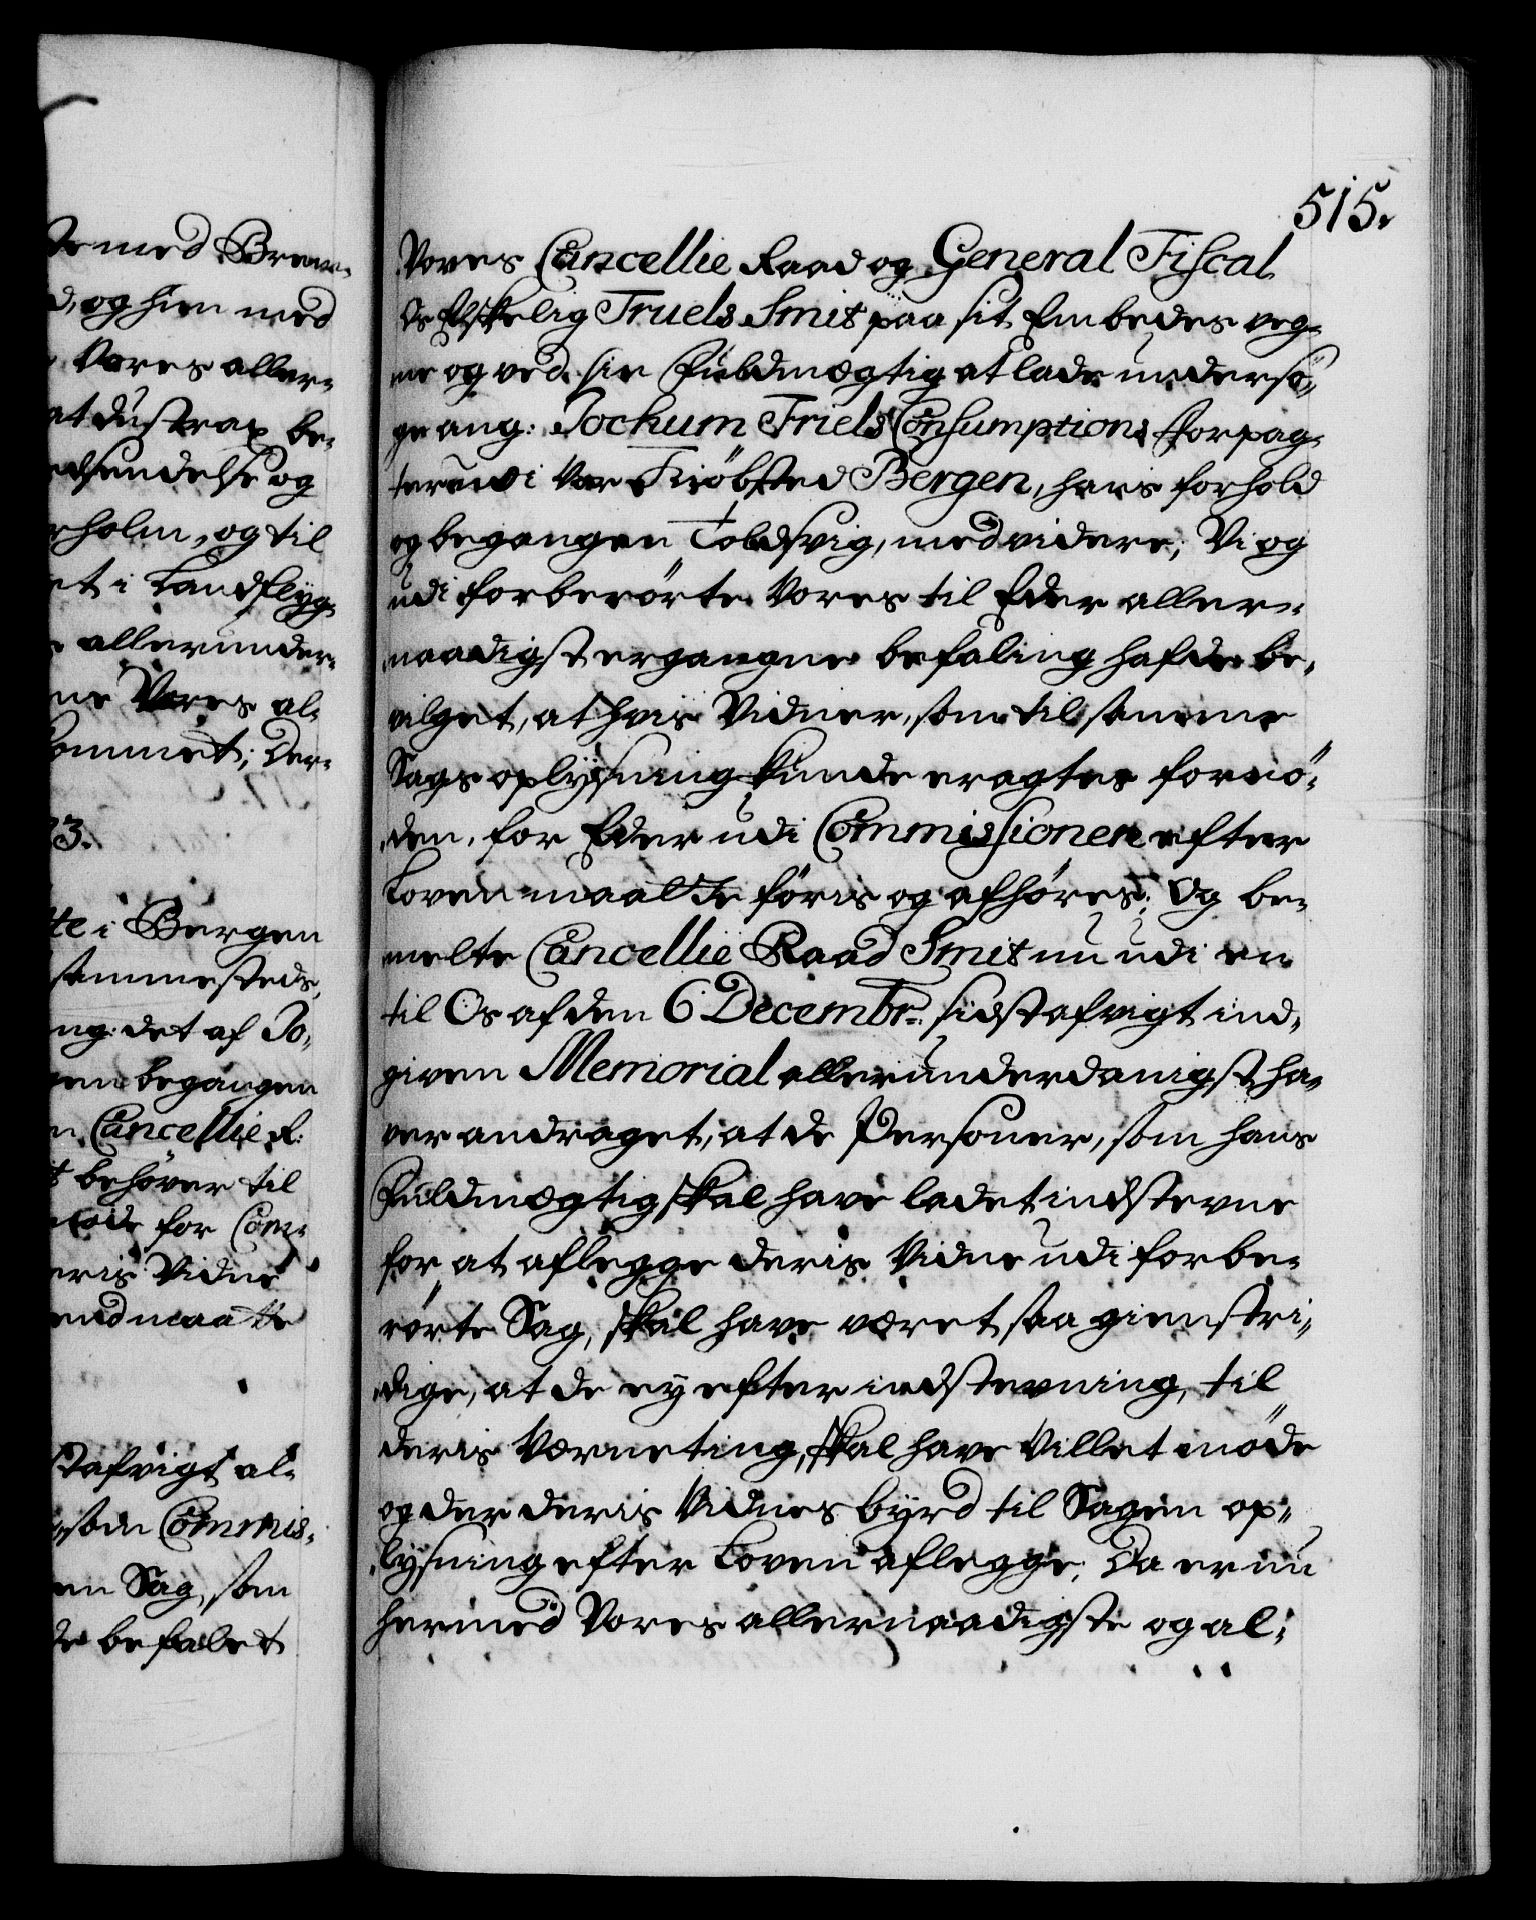 te med Brem-
d, og hien med
Vores aller-
at dustrax be-
edsendelse og
rholm, og til
et i Landflyg-
allerunder-
ne Vores al-
kommet; Der-
73.
tte i Bergen
sammesteds,
ng: det af Jo-
gen begangen
n Cancellie R:
t behøver til
møde for Com-
eris Vidne
end maatte
stafvigt al-
som Commis-
en Sag, som
de befalet
515.
Vores Cancellie Raad og General Fiscal
Os Elskelig Truels Smit paa sit Embedes veg-
ne og ved sin Fuldmægtig at lade undersø-
ge ang: Jockum Friels Consumptions Forpag-
ter udi Vor Kiøbsted Bergen, hans forhold
og begangen Toldsvig, med videre; Vi og
udi forberørte Vores til Eder aller-
naadigst ergangne befaling hafde be-
vilget, at hvis Vidner, som til samme
Sags oplysning kunde eragtes fornø-
den, for Eder udi Commissionen efter
Loven maatte føris og afhøres; Og be-
melte Cancellie Raad Smit nu udi en
til Os af den 6 Decembr: sidst afvigt ind-
given Memorial allerunderdanigst ha-
ver andraget, at de Personer, som hans
Fuldmægtig skal have ladet indstevne
for at aflegge deris Vidne udi forbe-
rørte Sag, skal have været saa gienstri-
dige, at de ey efter indstevning, til
deris Værneting, skal have villet møde
og der deris Vidnesbyrd til Sagen op-
lysning efter Loven aflegge; Da er nu
hermed Vores allernaadigste og al-